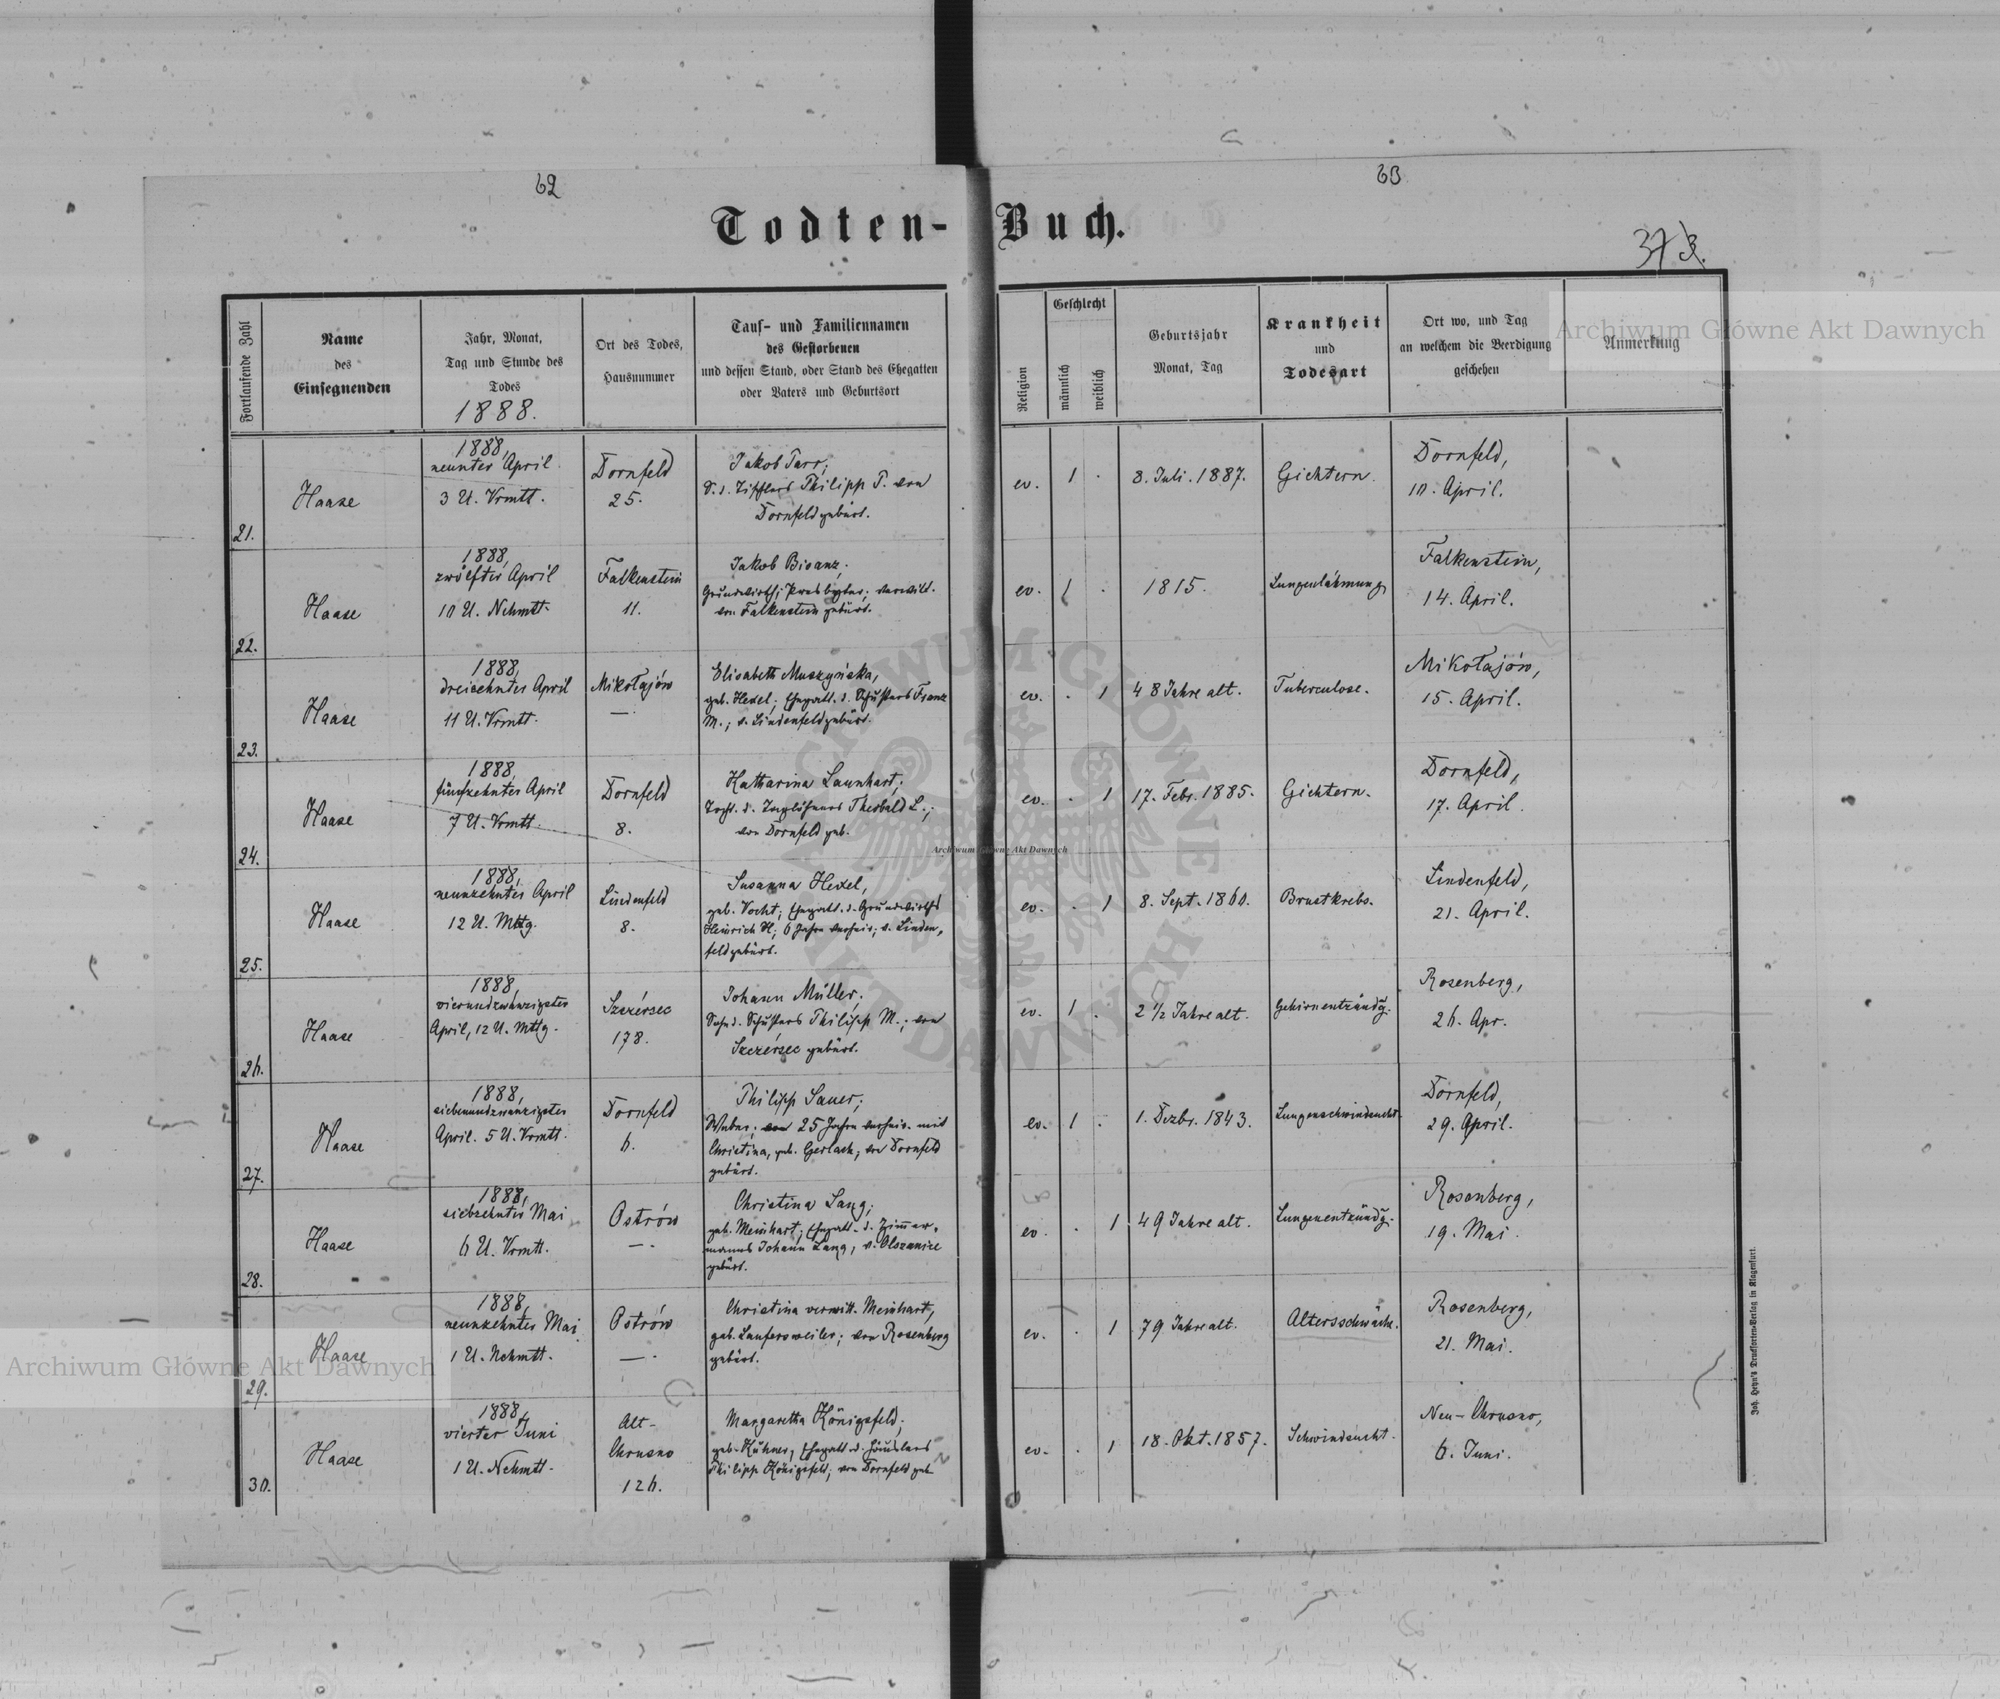 62
63
Todten-Buch.
373.
Fortlaufende Zahl
Name
des
Einsegnenden
Jahr, Monat,
Tag und Stunde des
Todes
1888.
Ort des Todes,
Hausnummer
Tauf- und Familiennamen
des Gestorbenen
und dessen Stand, oder Stand des Ehegatten
oder Vaters und Geburtsort
Religion
Geschlecht
männlich
weiblich
Geburtsjahr
Monat, Tag
Krankheit
und
Todesart
Ort wo, und Tag
an welchem die Beerdigung
geschehen
Anmerkung
21.
Haase
1888,
neunter April.
3 U. Vrmtt.
Dornfeld
25.
Jakob Tarr;
S. d. Philipp T. von
Dornfeld gebürt.
ev. 1 .
8. Juli. 1887.
Gichtern.
Dornfeld,
10. April.
22.
Haase
1888,
zwölfter April
10 U. Nchmtt.
Falkenstein
11.
Jakob Bisanz;
Grundwirth; Presbyter; verwitt.
von Falkenstein gebürt.
ev. 1 .
1815.
Lungenlähmung
Falkenstein,
14. April.
23.
Haase
1888,
dreizehnter April
11 U. Vrmtt.
Mikołajów
—.
Elisabeth Muszyńska,
geb. Hexel; Ehegatt. d. Schusters Franz
M.; v. Lindenfeld gebürt.
ev. . 1
48 Jahre alt.
Tuberculose.
Mikołajów,
15. April.
24.
Haase
1888,
fünfzehnter April
7 U. Vrmtt.
Dornfeld
8.
Katharina Launhart;
Tocht. d. Taglöhners Theobald L.;
von Dornfeld geb.
ev. . 1
17. Febr. 1885.
Gichtern.
Dornfeld,
17. April.
25.
Haase
1888,
neunzehnter April
12 U. Mttg.
Lindenfeld
8.
Susanna Hexel,
geb. Vocht; Ehegatt. d. Grundwirths
Heinrich H; 6 Jahre verheir; v. Linden,
feld gebürt.
ev. . 1
8. Sept. 1860.
Brustkrebs.
Lindenfeld,
21. April.
26.
Haase
1888,
vierundzwanzigster
April, 12 U. Mttg.
Szczérsec
178.
Johann Müller;
Sohn d. Schusters Philipp M.; von
Szczérsec gebürt.
ev. 1 .
2 1/2 Jahre alt.
Gehirnentzündg.
Rosenberg,
26. Apr.
27.
Haase
1888,
siebenundzwanzigster
April. 5 U. Vrmtt.
Dornfeld
6.
Philipp Sauer;
Weber; 25 Jahre verheir. mit
Christina, geb. Gerlach; von Dornfeld
gebürt.
ev. 1 .
1. Dezbr. 1843.
Lungenschwindsucht.
Dornfeld,
29. April.
28.
Haase
1888,
siebzehnter Mai
6 U. Vrmtt.
Ostrów
—.
Christina Lang;
geb. Meinhart; Ehegatt. d. Zimmer,
manns Johann Lang, v. Olszanice
gebürt.
ev. . 1
49 Jahre alt.
Lungenentzündg.
Rosenberg,
19. Mai.
29.
Haase
1888,
neunzehnter Mai
1 U. Nchmtt.
Ostrów
—.
Christina verwitt. Meinhart,
geb. Laufersweiler; von Rosenberg
gebürt.
ev. . 1
79 Jahre alt.
Altersschwäche.
Rosenberg,
21. Mai.
30.
Haase
1888,
vierter Juni
1 U. Nchmtt.
Alt-
Chrusno
126.
Margaretha Königsfeld;
geb. Kühner, Ehegatt. d. Häuslers
Philipp Königsfeld; von Dornfeld geb.
ev. . 1
18. Okt. 1857.
Schwindsucht.
Neu-Chrusno,
6. Juni.
Joh. Heyn's Drucksorten-Verlag in Klagenfurt.
Archiwum Główne Akt Dawnych
Archiwum Główne Akt Dawnych
Archiwum Główne Akt Dawnych
ARCHIWUM GŁÓWNE AKT DAWNYCH